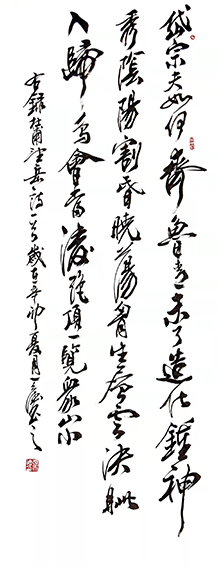 岱宗夫如何齐鲁青未了造化鍾神
秀陰陽割昏曉蕩胸生層雲決眦
入歸鸟會當凌絕頂一覽衆山小
古錄杜甫望岳诗一首歲在辛卯夏月